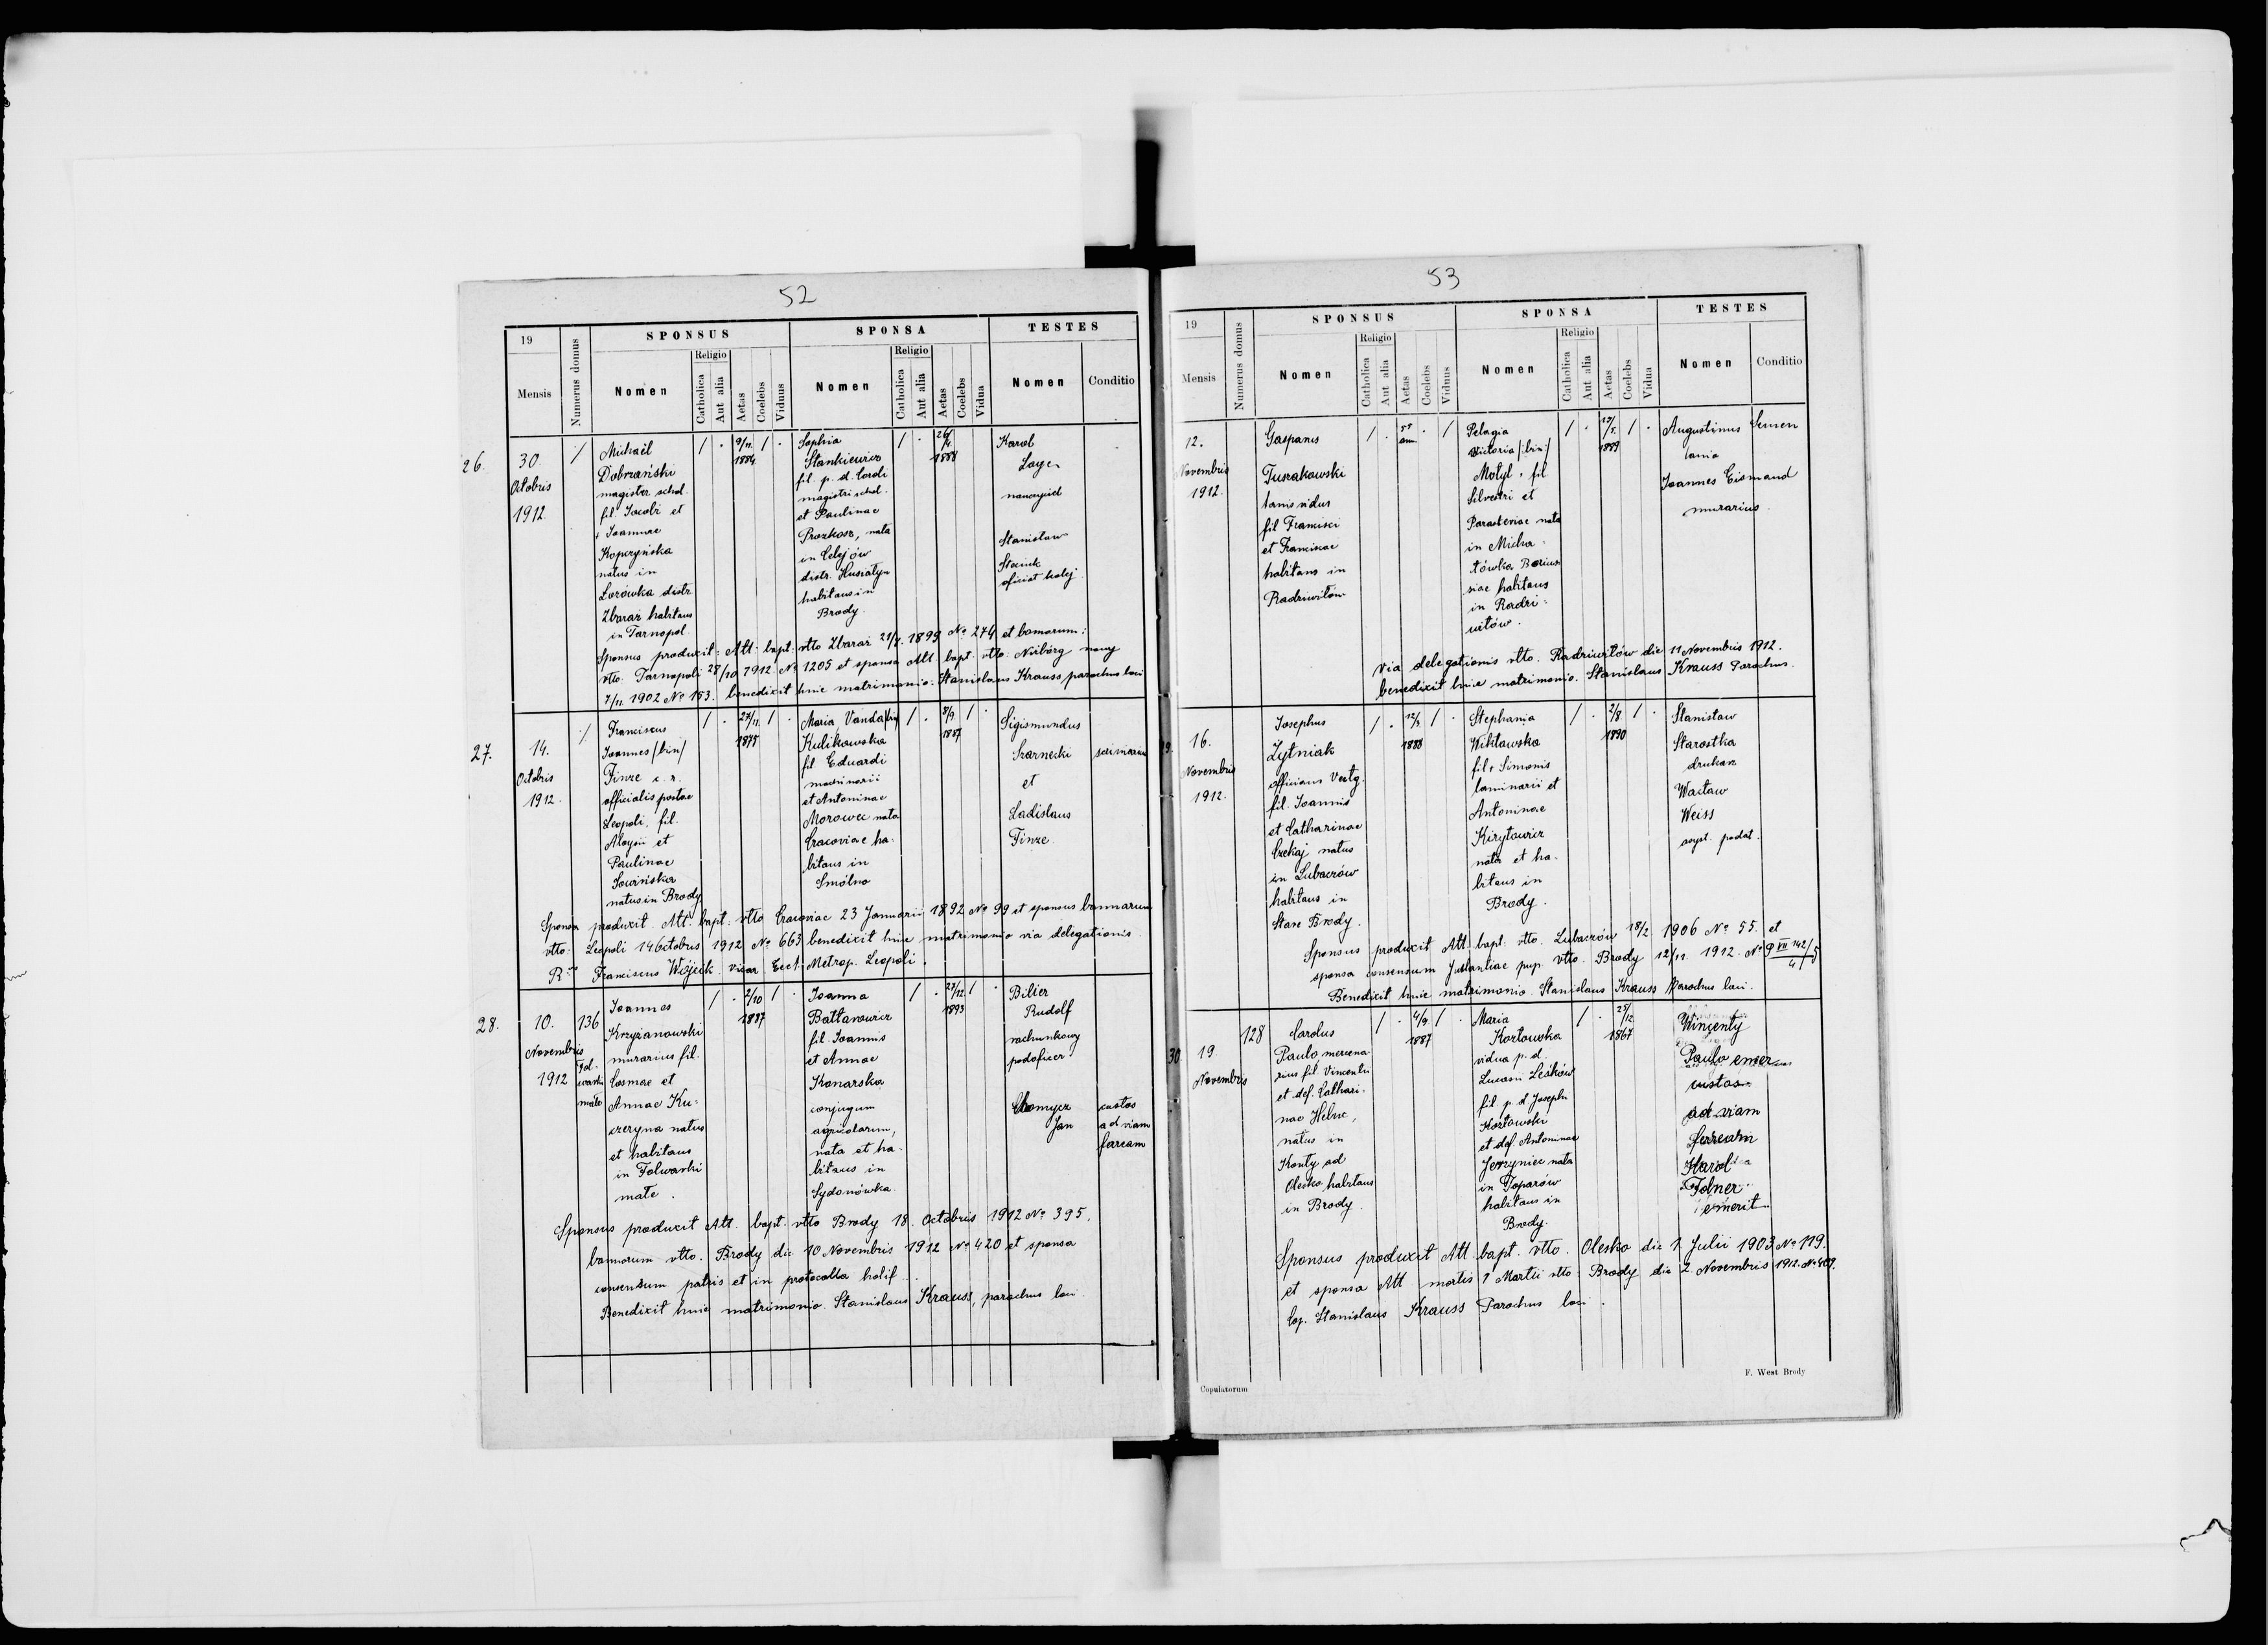 52
19
Mensis
Numerus domus
SPONSUS
Nomen
Religio
Catholica
Aut alia
Aetas
Coelebs
Viduus
SPONSA
Nomen
Religio
Catholica
Aut alia
Aetas
Coelebs
Vidua
TESTES
Nomen
Conditio
26.
30.
Octobris
1912
Michaël
Dobrzański
magister schol.
fil. Jacobi et
Joannae
Kopczyńska
natus in
Lozówka distr.
Zbaraż habitans
in Tarnopol.
9/11.
1884
Sophia
Stankiewicz
fil. p. d. Caroli
magistri schol.
et Paulinae
Prozkosz, nata
in Celejów
distr. Husiatyn
habitans in
Brody.
26/4
1888
Karol
nauczyciel
Stanisław
oficiał kolej.
Sponsus produxit: Att. bapt. dtto Zbaraż 21/7. 1899 No 274 et bannorum:
dtto: Tarnopoli 28/10 1912 No 1205 et sponsa Att. bapt. dtto:
7/11. 1902 No 183. benedixit huic matrimonio: Stanislaus Krauss, parochus loci
27.
14.
Octobris
1912.
Franciscus
Joannes /bin/
Finze c. r.
officialis postae
Leopoli, fil.
Aloysii et
Paulinae
Sowińska
natus in Brody
27/11.
1875
Maria Vanda /bin/
Kulikowska
fil. Eduardi
et Antoninae
Morowec nata
Cracoviae ha-
bitans in
Smólno
8/9
1887
Sigismundus
Szarnecki
et
Ladislaus
Finze
Sponsa produxit Att. bapt. dtto Cracoviae 23 Januarii 1892 No 99 et sponsus bannorum
dtto: Leopoli 14 Octobris 1912 No 663 benedixit huic matrimonio via delegationis
Franciscus Wójcik. Vicar Eccl. Metrop. Leopoli.
28.
10.
Novembris
1912
136
Fol-
warki
małe
Joannes
Krzyżanowski
murarius fil.
Cosmae et
Annae Ku-
czeryna natus
et habitans
in Folwarki
małe.
2/10
1887
Joanna
Bałtarowicz
fil. Joannis
et Annae
Konarska
conjugum
agricolarum,
nata et ha-
bitans in
Sydonówka.
27/12.
1893
Bilier
Rudolf
rachunkowy
podoficer
Chomycz
Jan
custos
ad viam
ferream
Sponsus produxit Att. bapt. dtto Brody 18. Octobris 1912 No 395,
bannorum dtto. Brody die 10 Novembris 1912 No 420 et sponsa
consensum patris et in protocollo
Benedixit huic matrimonio. Stanislaus Krauss, parochus loci.
53
19
Mensis
Numerus domus
SPONSUS
Nomen
Religio
Catholica
Aut alia
Aetas
Coelebs
Viduus
SPONSA
Nomen
Religio
Catholica
Aut alia
Aetas
Coelebs
Vidua
TESTES
Nomen
Conditio
12.
Novembris
1912.
Gasparus
Turakowski
fil Francisci
et Franciscae
habitans in
Radziwiłów
Pelagia
Victoria /:bin:/
Motyl. fil
Silvestri et
Parasteviae nata
in Micha-
łówka
habitans
in Radzi-
wiłów.
1889
Augustinus
Joannes Eismand
murarius.
Via delegationis dtto. Radziwiłów die 11 Novembris 1912.
benedixit huic matrimonio. Stanislaus Krauss Parochus.
16.
Novembris
1912.
Josephus
Żytniak
fil. Joannis
et Catharinae
Czekaj natus
in Lubaczów
habitans in
Stare Brody.
1888
Stephania
fil. Simonis
laminarii et
Antoninae
Kiryłowicz
nata et ha-
bitans in
Brody.
2/8.
1890
Stanisław
Starostka
drukarz
Wacław
Weiss
asyst. podat.
Sponsus produxit Att. bapt. dtto. Lubaczów 18/2 1906 No 55. et
sponsa consensum Instantiae pup. dtto. Brody 12/11. 1912. No P VII 142/4/5
Benedixit huic matrimonio. Stanislaus Krauss Parochus loci.
30.
19.
Novembris
128
Carolus
Paulo mercena-
rius fil Vincentii
et def. Cathari-
nae
natus in
Konty ad
Olesko habitans
in Brody.
4/9.
1887
Maria
Kozłowska
vidua p. d.
Lucasii Leśków
fil p. d Josephi
Kozłowski
et def. Antoninae
Jerzyniec nata
in Toparów
habitans in
Brody.
1867
Wincenty
Paulo
custos
ad viam
ferream
Karol
Folner
emerit.
Sponsus produxit Att. bapt. dtto. Olesko die 1 Julii 1903 No 119.
et sponsa Att mortis 1 Martii dtto: Brody die 2 Novembris 1912. No 407.
Cop. Stanislaus Krauss Parochus loci.
Copulatorum
F. West Brody